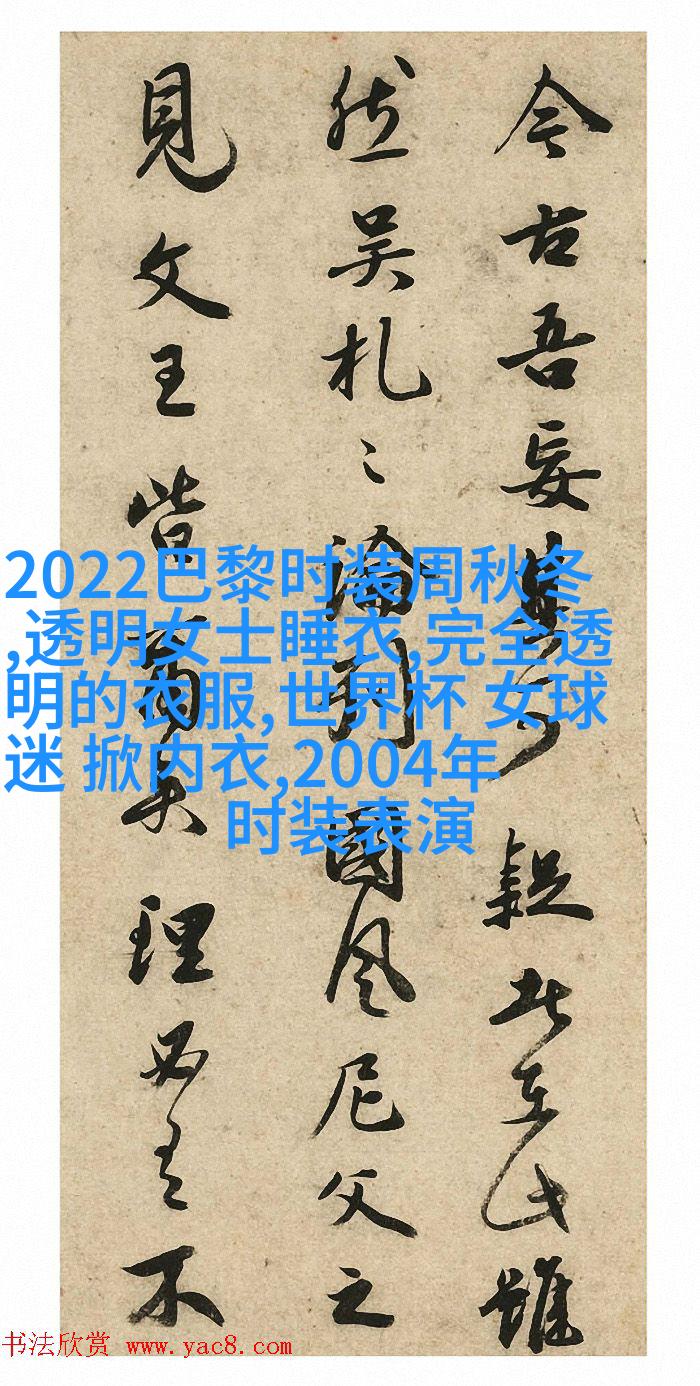 今古吾妄疑者在此雖
然吴札〻論國風尼父之
見文王皆矣理必有不
2022巴黎时装周秋冬
,透明女士睡衣,完全透
明的衣服,世界杯 女球
迷 掀内衣,2004年
时装表演
书法欣赏 www.yac8.com